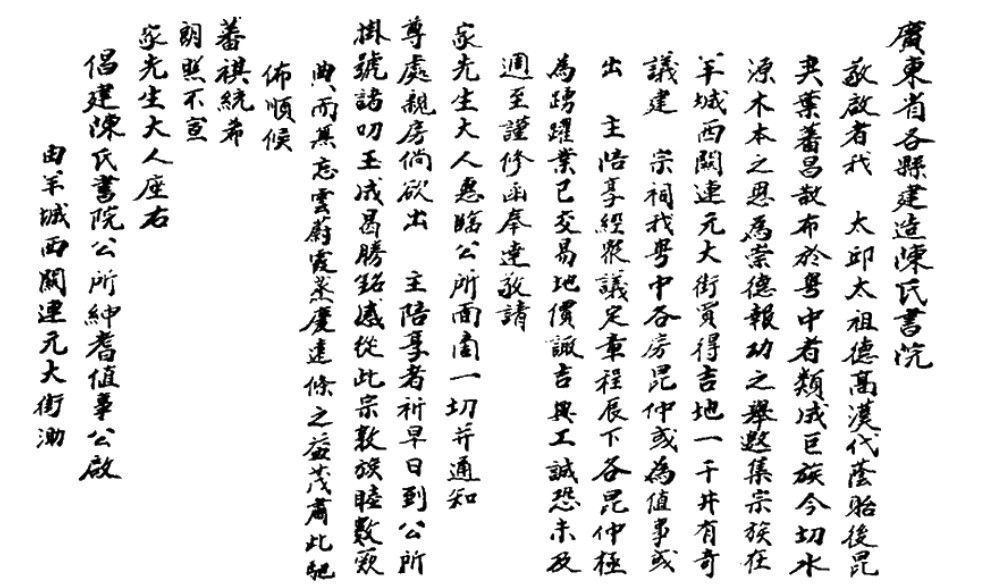 廣東省各縣建造陳氏書院
敬啟者我　太邱太祖德高漢代蔭貽後昆
奕葉蕃昌散布於粵中者類成巨族今切水
源木本之思為崇德報功之舉邀集宗族在
羊城西關連元大街買得吉地一千井有奇
議建　宗祠我粵中各房昆仲或為值事或
出　主陪享經眾議定章程辰下各昆仲極
為踴躍業已交易地價諏吉興工誠恐未及
週至謹修函奉達敬請
家先生大人惠臨公所面商一切并通知
尊處親房倘欲出　主陪享者祈早日到公所
掛號諸叨玉成曷勝銘感從此宗敦族睦數典
典而無忘雲蔚霞蒸慶遠條之益茂肅此馳
佈順候
蕃祺統希
朗照不宣
家先生大人座右
倡建陳氏書院公所紳耆值事公啟
由羊城西關連元大街泐